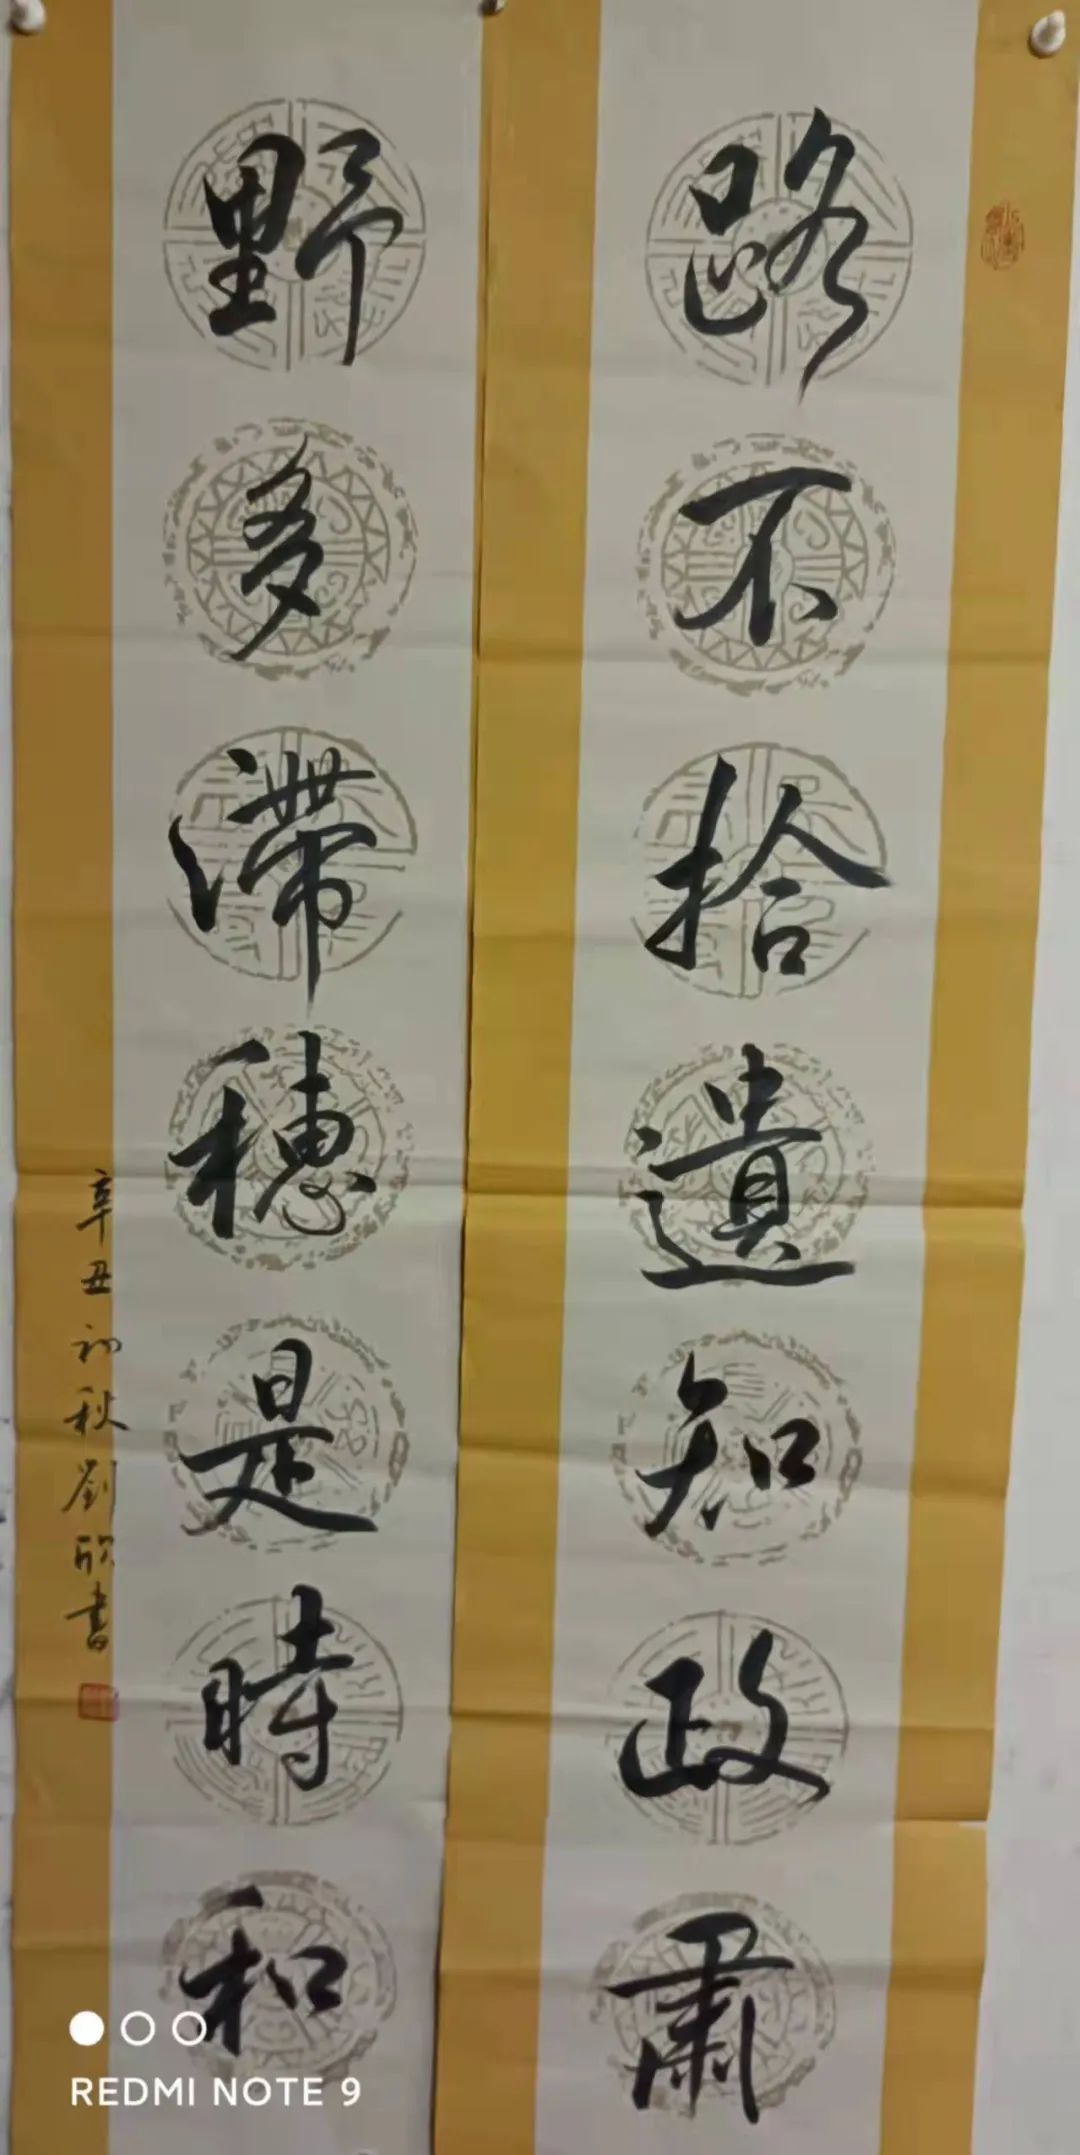 路不拾遺知政肅
野多滯穗是時和
辛丑初秋劉欣書
REDMI NOTE 9